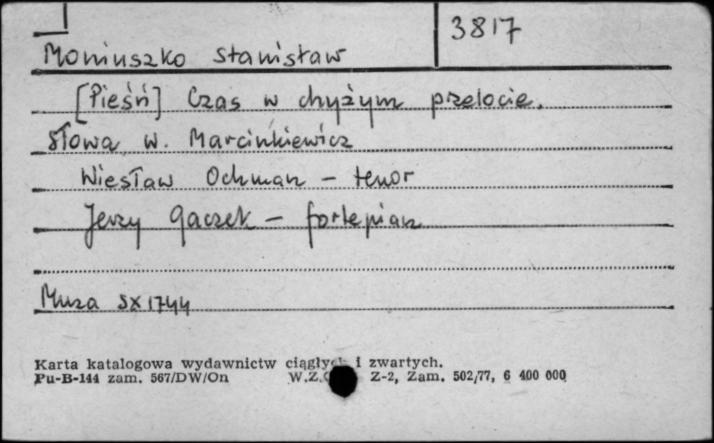 3817
Moniuszko Stanisław
[Pieśń] Czas w chyżym przelocie.
Słowa W. Marcinkiewicz
Wiesław Ochman – tenor
Jerzy Gaczek – fortepian
Muza SX 1744
Karta katalogowa wydawnictw ciągłych i zwartych.
Pu-B-144 zam. 567/DW/On W.Z. Z-2, Zam. 502/77, 6 400 000